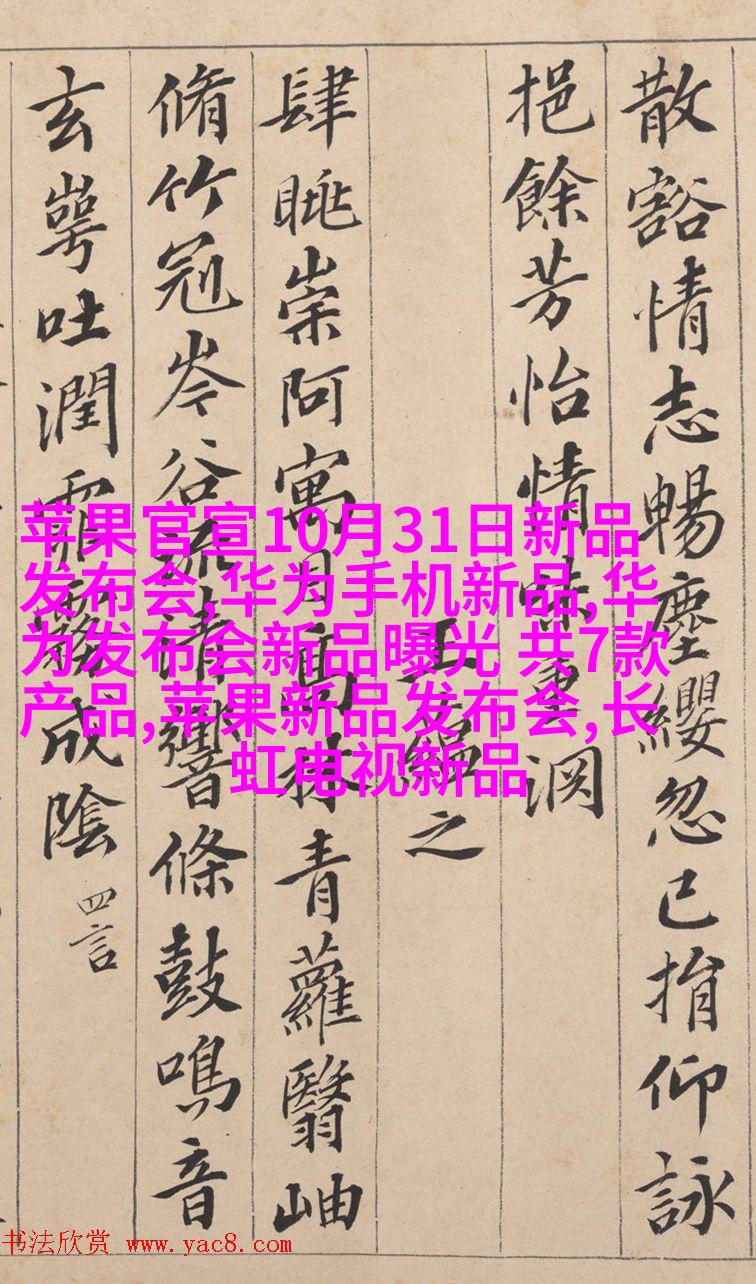 散豁情志暢塵纓忽已捐仰詠
挹餘芳怡情味重渊
王蘊之
肆眺崇阿寓目高林青蘿翳岫
脩竹冠岑谷流清響條鼓鳴音
玄崿吐潤霏霧成陰 四言
苹果官宣10月31日新品
发布会,华为手机新品,华
为发布会新品曝光 共7款
产品,苹果新品发布会,长
虹电视新品
书法欣赏 www.yac8.com